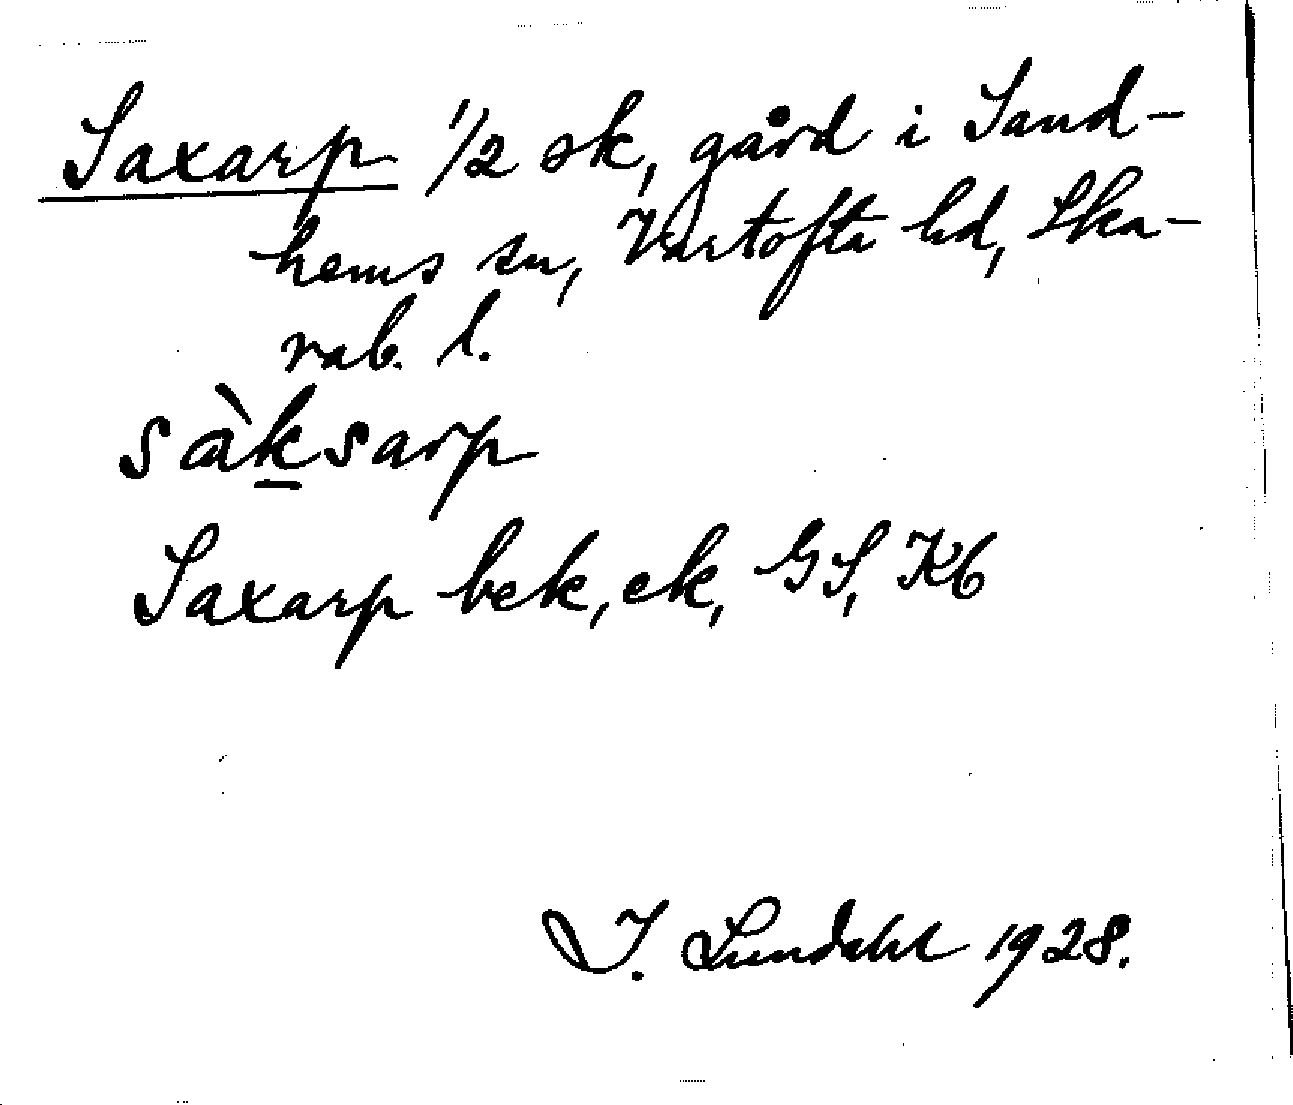 Saxarp 1/2 sk, gård i Sand-
hems sn, Vartofta hd, Ska-
rab. l.
sàksarp
Saxarp bek, ek, GS, Kb
I. Lundahl 1928.